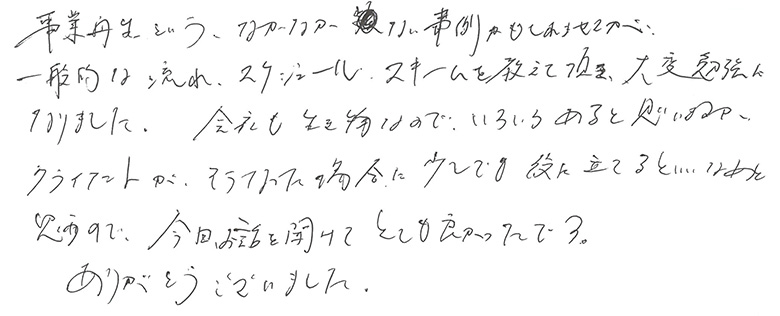 事業再生という、なかなか類ない事例かもしれませんが、
一般的な流れ、スケジュール、スキームを教えて頂き、大変勉強に
なりました。会社も生き物なので、いろいろあると思いますが、
クライアントが、そうなった場合に少しでも役に立てるといいなあと
思うので、今回お話を聞けてとても良かったです。
ありがとうございました。